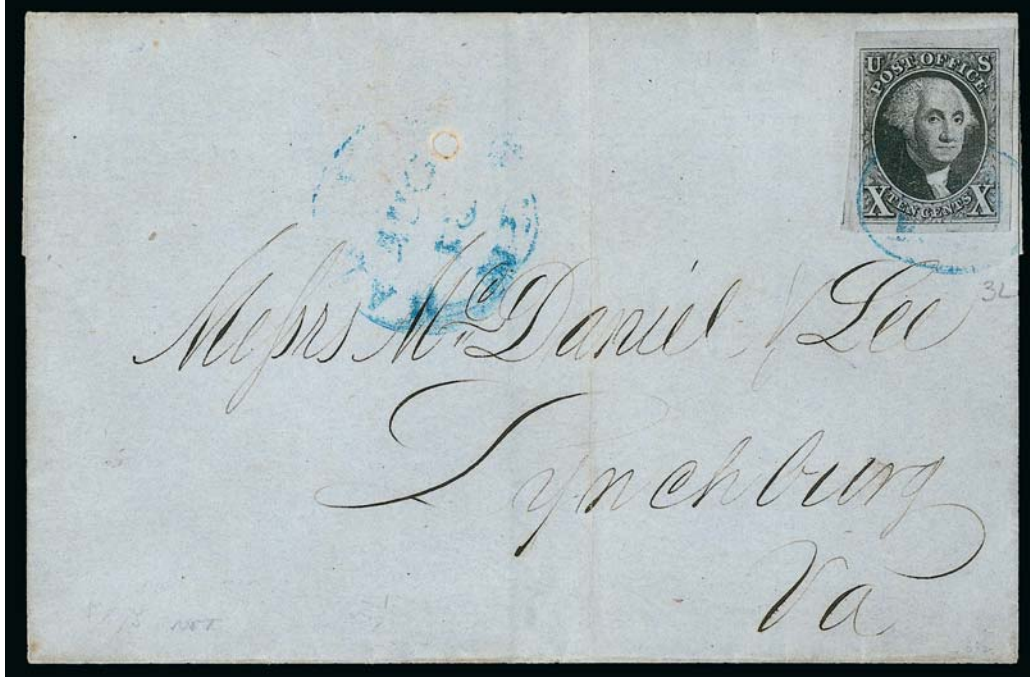 U S
POST OFFICE
X TEN CENTS X
AUG
32
Messrs McDaniel & Lee
Lynchburg
Va
NOT